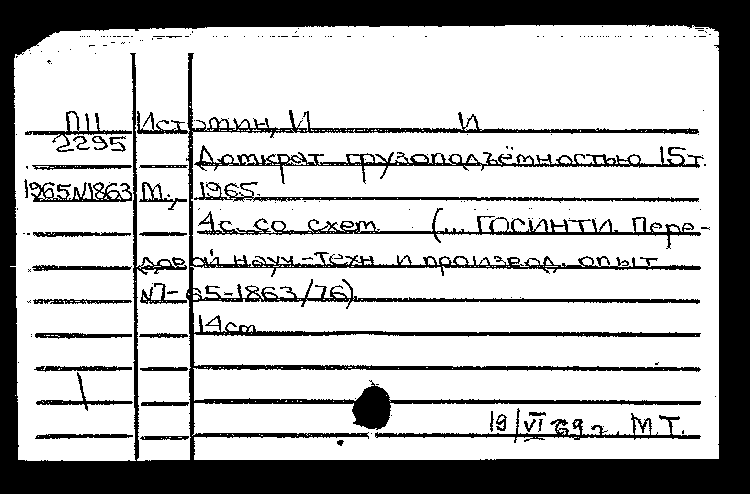 П11 Истомин, И И
2295
Домкрат грузоподъёмностью 15т.
1965 N1863 М., 1965.
4с. со схем (... ГОСИНТИ. Пере-
довой науч.-техн и производ. опыт
N7-65-1863/76).
14см
19/VI 69 г. М.Т.